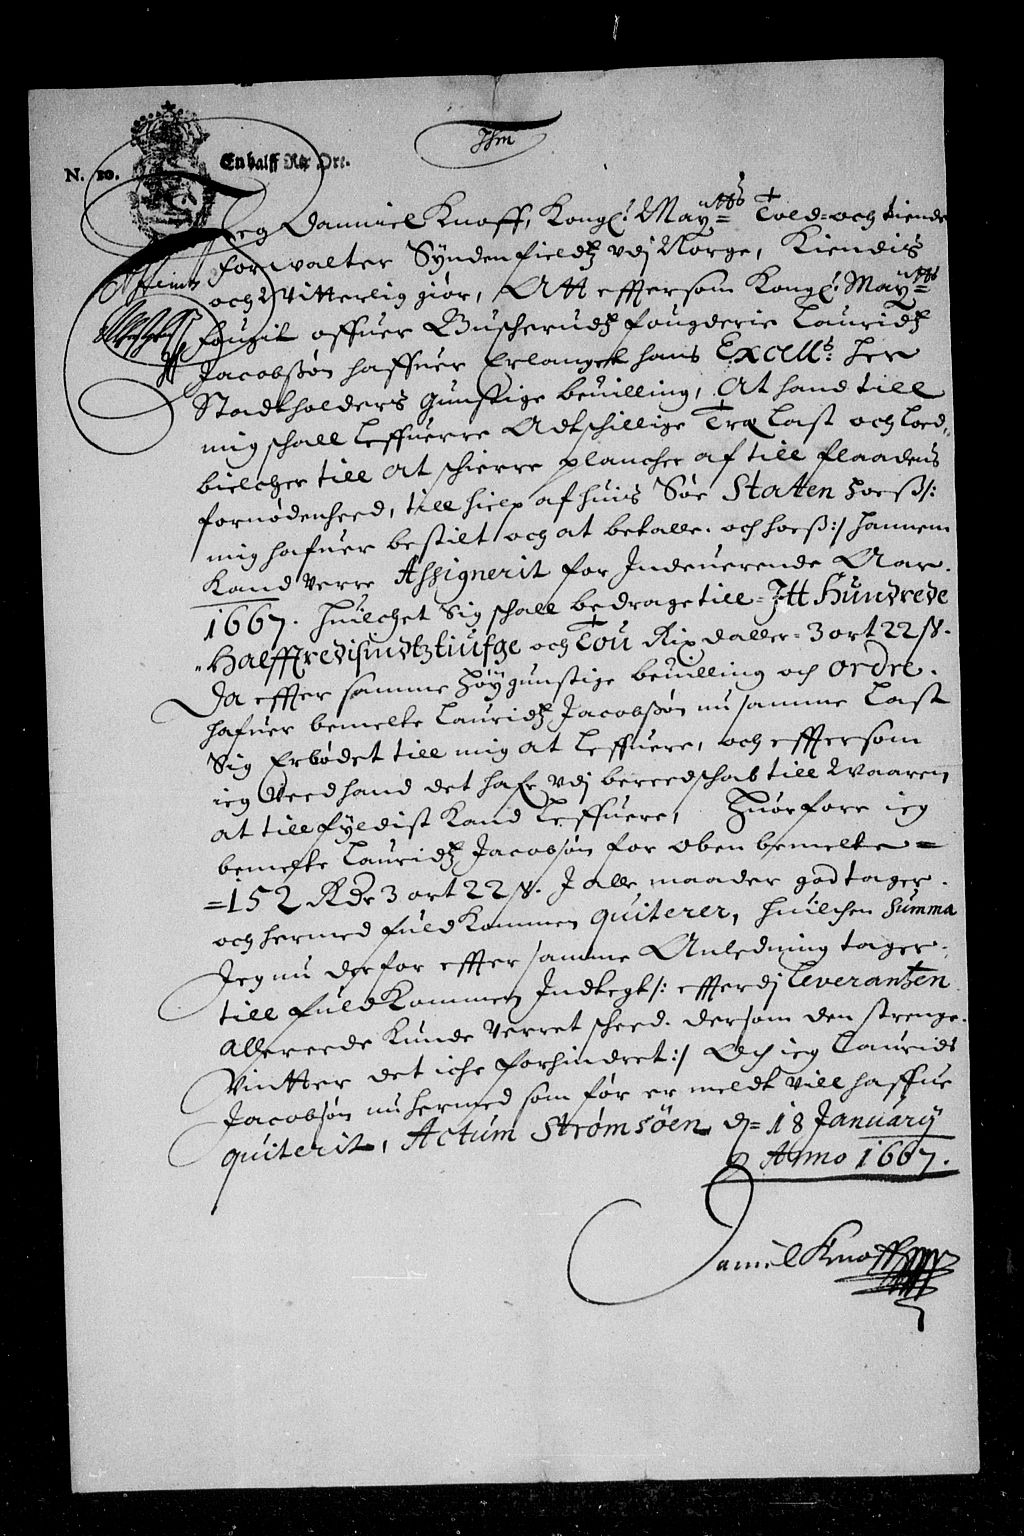 N. 10. En halff Rix Ort.
Jeg Danniel Knoff, Kongl: Maytts Told- och tiende
forwalter Syndenfieldz vdj Norge, Kiendis
och Vitterlig giør, Att effter som Kongl: Maytts
fougit offuer Buscheruds fougderie Lauridz
Jacobßøn haffuer Erlanget hans Excells: her
Stadtholders gunstige beuilling, At hand till
mig schall leffuerre Adtschillige Træ Last och Lord-
bielcher till at schierre plancher af till flaadens
fornødenheed, till hielp af huis Søe Staten hoeß/:
mig hafuer bestilt och at betalle. och hoeß:/ hannem
Kand Verre Assignerit for Indeuerende Aar.
1667. Huilchet Sig schall bedrage till = Itt Hundrede
Halfftredisindtztiufge och Tou Rix daller = 3 ort 22 ß.
Da effter samme høygunstige beuilling och ordre.
hafuer bemelte Lauridz Jacobßøn nu samme Last
Sig Erbødet till mig at leffuere, och efftersom
ieg Veed hand det hafr vdj bereedschab till Waaren
at tillfyldist Kand leffuere, Huorfore ieg
bemelte Lauridz Jacobsøn for oben bemelte =
=152 Rdr 3 ort 22 ß. J alle maader godtager.
och hermed fuldkommen quiterer, huilchen Summa
Jeg nu derfor effter samme Anledning tager.
till fuldkommen Indtegt/: effterdj Leverantzen
Allereede Kunde Verret scheed. dersom den strenge.
Vintter det iche forhindret:/ Och ieg Laurids
Jacobsøn nu hermed som før er meldt vill haffue
quiterit, Actum Strømsöen d= 18 January
Anno 1667.
Daniel Knoff